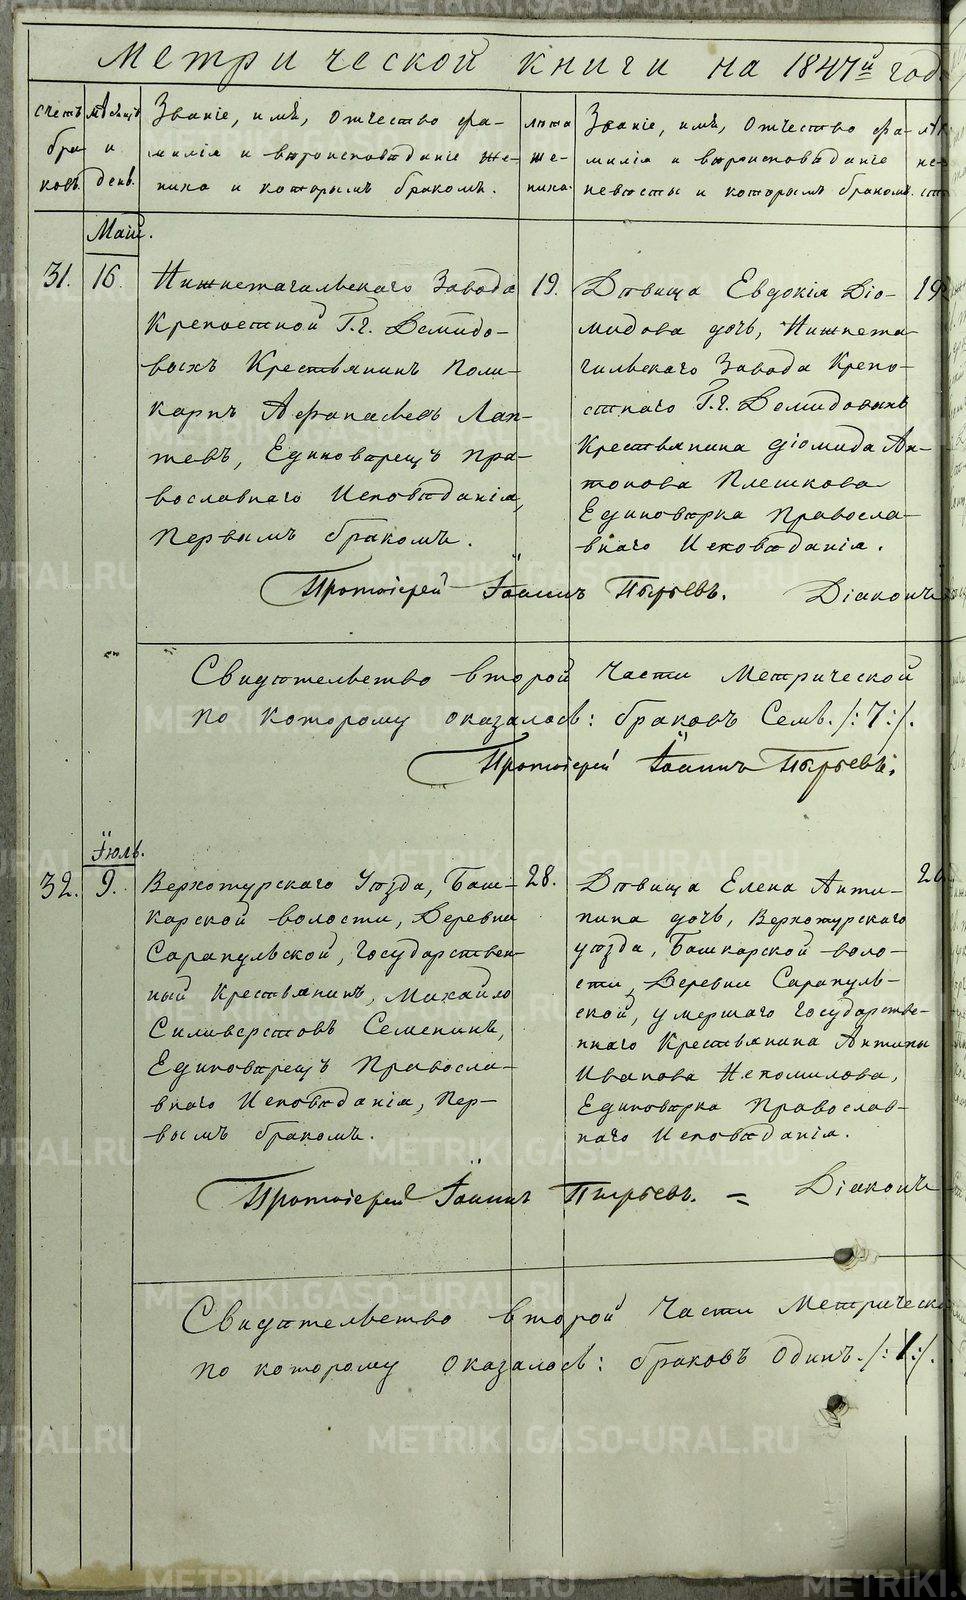 Метрической книги на 1847й год
Счетъ браковъ.
Мѣсяцъ и день.
Званіе, имя, отчество фа-
милія и вѣроисповѣданіе же-
ниха и которымъ бракомъ.
лѣта же-
ниха.
Званіе, имя, отчество фа-
милія и вѣроисповѣданіе
невѣсты и которымъ бракомъ.
Маій.
31.
16.
Нижнетагильскаго Завода
Крепостной Г.г. Демидо-
выхъ Крестьянинъ Поли-
карпъ Афанасьевъ Лап-
тевъ, Единоверецъ Пра-
вославнаго Исповѣданія,
Первымъ бракомъ.
19.
Дѣвица Евдокія Діо-
мидова дочь, Нижнета-
гильскаго Завода Крепо-
стнаго Г.г. Демидовыхъ
Крестьянина Діомида Ан-
тонова Плешкова
Единоверка Правосла-
внаго Исповѣданія.
19
Протоіерей Іоаннъ Пырьевъ. Діаконъ
Свидѣтельство второй части Метрической
по которому оказалось: браковъ Семь. /:7:/.
Протоіерей Іоаннъ Пырьевъ.
Іюль.
32.
9.
Верхотурскаго Уѣзда, Баш-
карской волости, Деревни
Сарапульской, Государствен-
ный Крестьянинъ, Михайло
Силиверстовъ Семенинъ,
Единоверецъ Правосла-
внаго Исповѣданія, Пер-
вымъ бракомъ.
28.
Дѣвица Елена Анти-
пина дочь, Верхотурскаго
уѣзда, Башкарской воло-
сти, Деревни Сарапуль-
ской, умершаго Государстве-
ннаго Крестьянина Антипы
Иванова Непомилова,
Единоверка Православ-
наго Исповѣданія.
Протоіерей Іоаннъ Пырьевъ. = Діаконъ
Свидѣтельство второй части Метрическо
по которому оказалось: браковъ одинъ. /:1:/.
METRIKI.GASO-URAL.RU